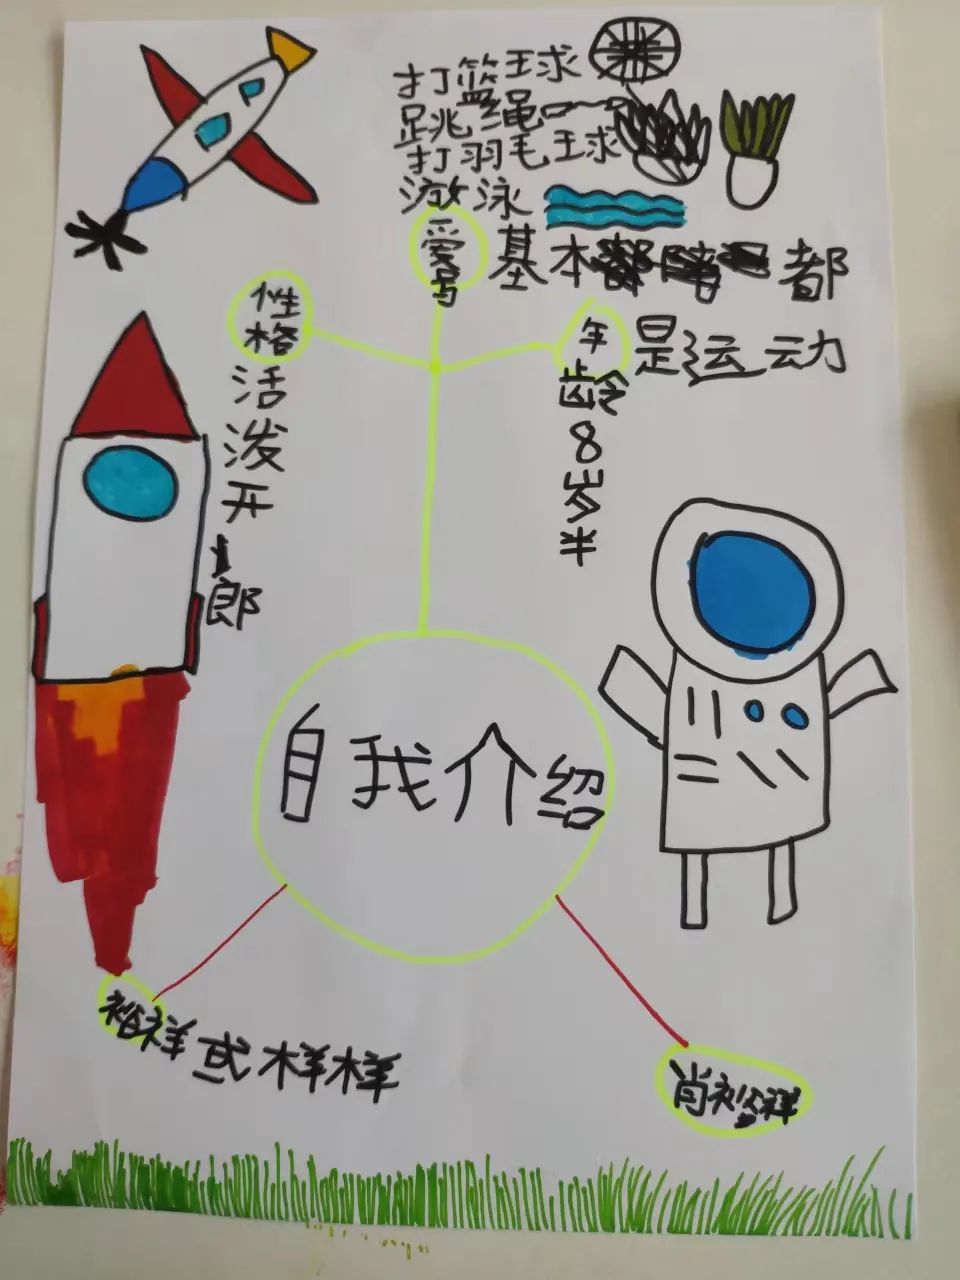 打篮球
跳绳
打羽毛球
游泳
爱好
基本都
是运动
性格
活泼开郎
年龄8岁半
自我介绍
裕祥或样样
肖裕祥